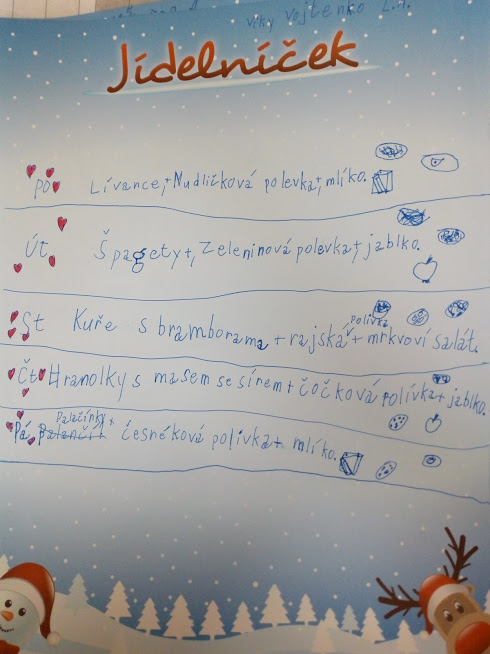 Viky Vojtenko
Jídelníček
Po Lívance,+Nudličková polevka,+mlíko.
Út. Špagety+, Zeleninová polevka,+jablko.
polívka
St Kuře s bramborama + rajská + mrkvoví salát.
Čt Hranolky s masem se sírem + čočková polívka + jablko.
Palačinky +
Pá česnéková polívka + mlíko.